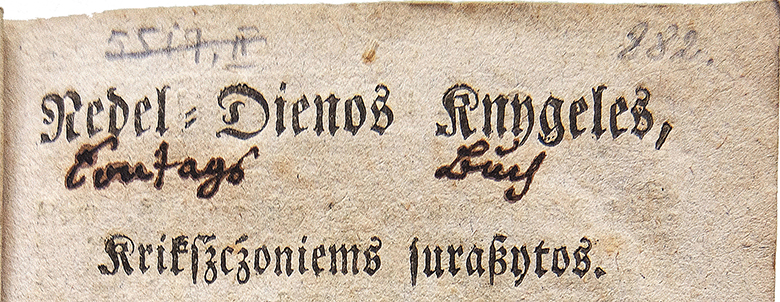 5517, II 882.
Nedel-Dienos Knygeles,
Sontags Buch
Krikszczoniems suraßytos.